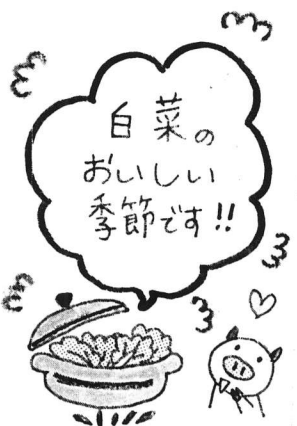 白菜の
おいしい
季節です!!